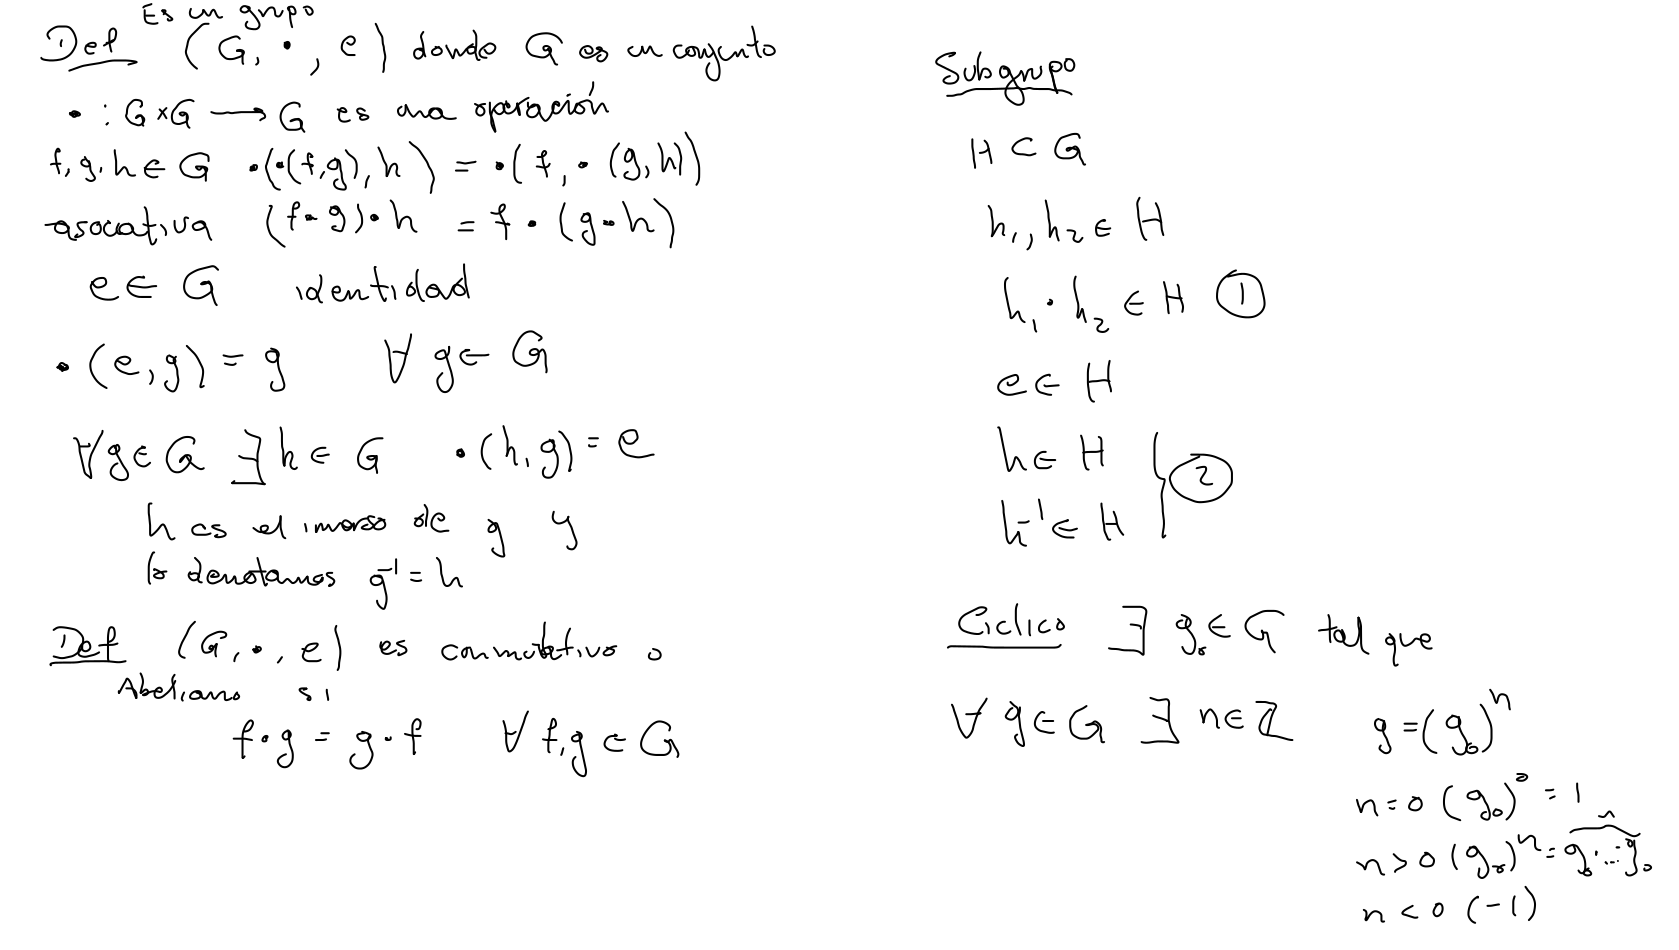 Es un grupo
Def (G, ·, e) donde G es un conjunto
· : G×G ⟶ G es una operación
f, g, h ∈ G ·(·(f,g), h) = ·(f, ·(g,h))
asocativa (f·g)·h = f·(g·h)
e ∈ G identidad
·(e,g) = g ∀ g ∈ G
∀g∈G ∃ h ∈ G ·(h,g) = e
h es el inverso de g y
lo denotamos g⁻¹ = h
Def (G, ·, e) es conmutativo o
Abeliano si
f·g = g·f ∀ f,g ∈ G
Subgrupo
H ⊂ G
h₁, h₂ ∈ H
h₁·h₂ ∈ H ①
e ∈ H
h ∈ H
h⁻¹ ∈ H } ②
Ciclico ∃ g₀ ∈ G tal que
∀ g ∈ G ∃ n ∈ ℤ g = (g₀)ⁿ
n = 0 (g₀)⁰ = 1
n
n > 0 (g₀)ⁿ = g₀·...·g₀
n < 0 (-1)